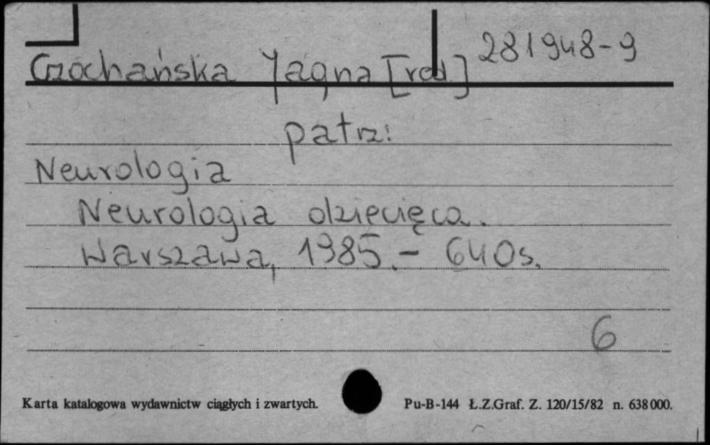 Czochańska Jagna [red] 281948-9
patrz:
Neurologia
Neurologia dziecięca.
Warszawa, 1985.- 640s.
6
Karta katalogowa wydawnictw ciągłych i zwartych. Pu-B-144 Ł.Z.Graf. Z. 120/15/82 n. 638000.